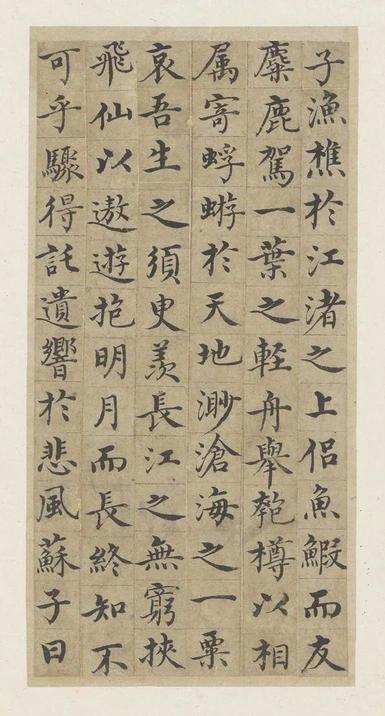 子漁樵於江渚之上侶魚鰕而友
麋鹿駕一葉之軽舟舉匏樽以相
属寄蜉蝣於天地渺滄海之一粟
哀吾生之須臾羨長江之無窮挾
飛仙以遨遊抱明月而長終知不
可乎驟得託遺響於悲風蘇子曰